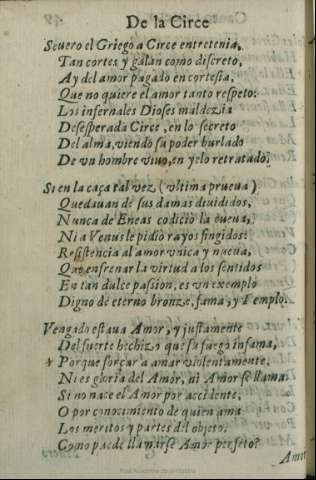 De la Circe
Seuero el Griego a Circe entretenia,
Tan cortes y galan como discreto,
Ay del amor pagado en cortesia,
Que no quiere el amor tanto respeto:
Los infernales Dioses maldezia
Desesperada Circe, en lo secreto
Del alma, viendo su poder burlado
De vn hombre viuo, en yelo retratado.
Si en la caça tal vez (vltima prueua)
Quedauan de sus damas diuididos,
Nunca de Eneas codiciò la cueua,
Ni a Venus le pidio rayos fingidos:
Resistencia al amor vnica y nueua,
Que enfrenar la virtud a los sentidos
En tan dulce passion, es vn exemplo
Digno de eterno bronze, fama, y Templo.
Vengado estaua Amor, y justamente
Del fuerte hechizo que su fuego infama,
Porque forçar a amar violentamente,
Ni es gloria del Amor, ni Amor se llama
Si no nace el Amor por accidente,
O por conocimiento de quien ama
Los meritos y partes del objeto,
Como puede llamarse Amor perfeto?
Amor
Real Academia de la Historia